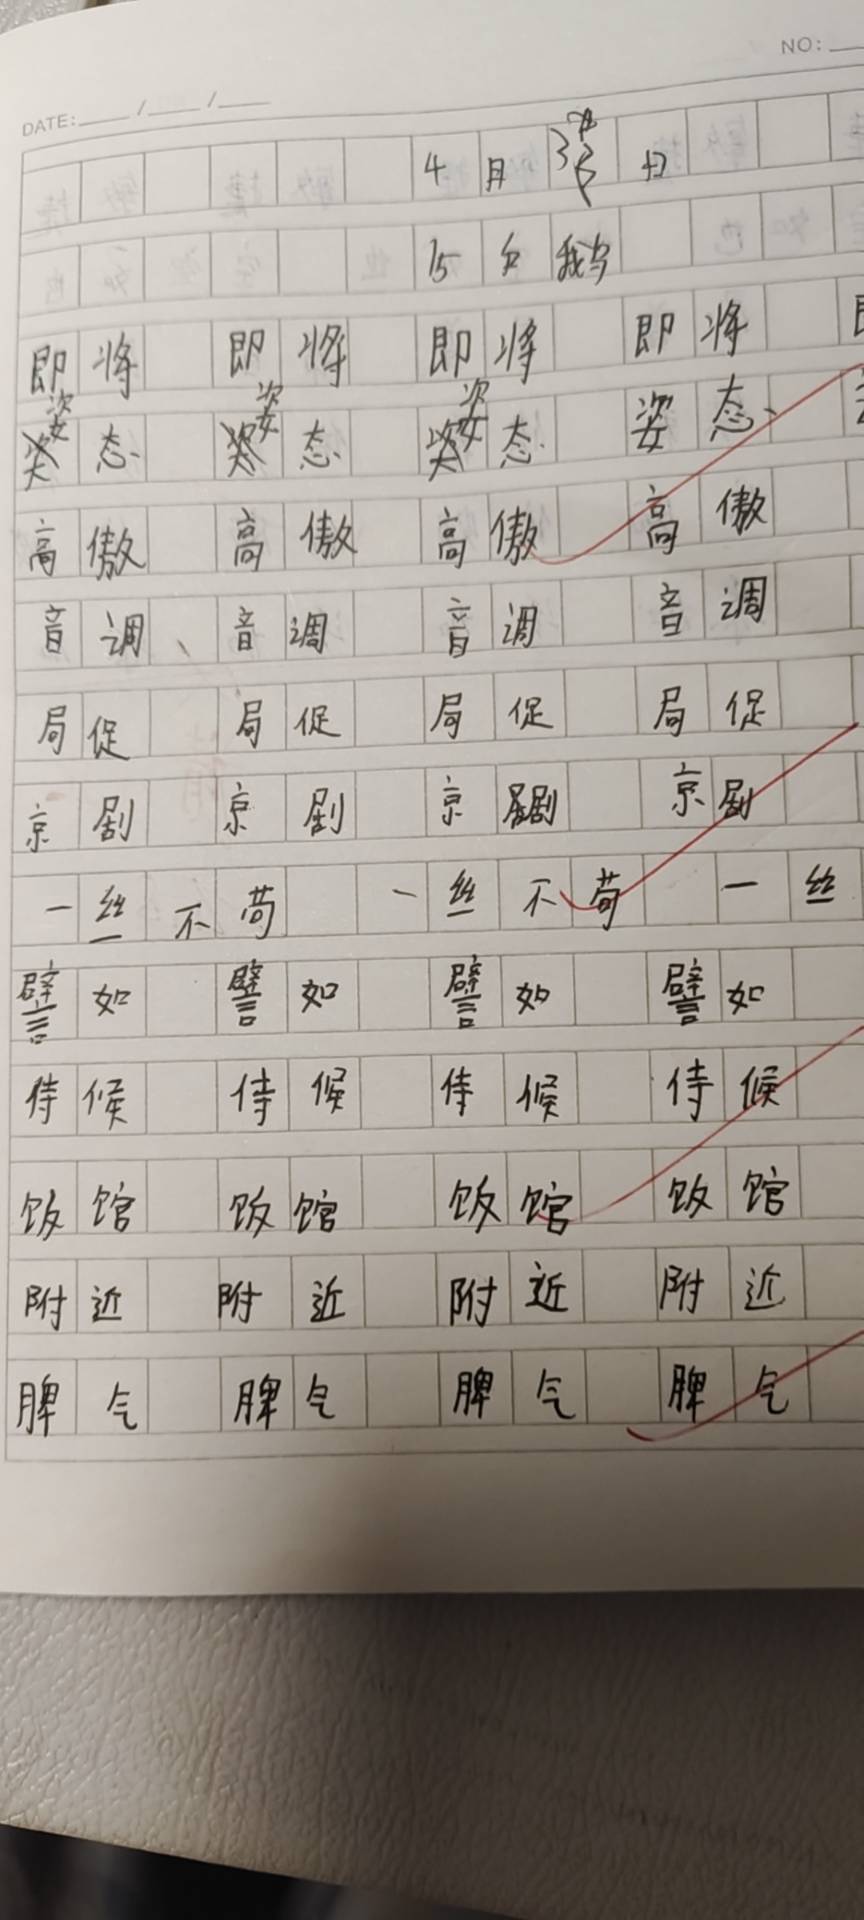 NO:
DATE: / /
4 月 日
15
即将 即将 即将 即将
姿 姿 姿
态 态 态 姿态
高傲 高傲 高傲 高傲
音调、 音调 音调 音调
局促 局促 局促 局促
京剧 京剧 京剧 京剧
一丝不苟 一丝不苟 一丝
譬如 譬如 譬如 譬如
侍候 侍候 侍候 侍候
饭馆 饭馆 饭馆 饭馆
附近 附近 附近 附近
脾气 脾气 脾气 脾气